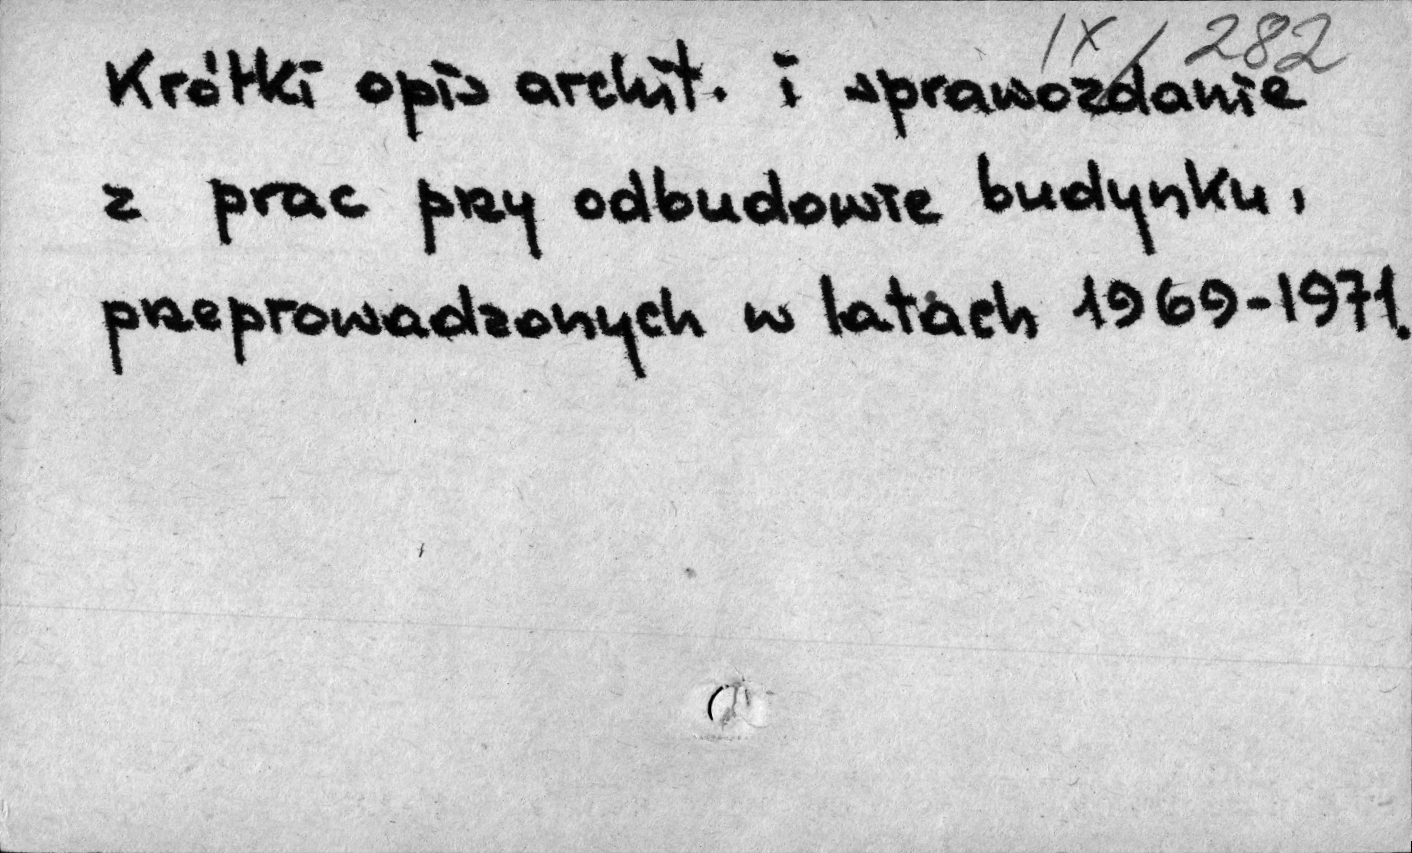 IX/282
Krótki opis archit. i sprawozdanie
z prac przy odbudowie budynku,
przeprowadzonych w latach 1969-1971.